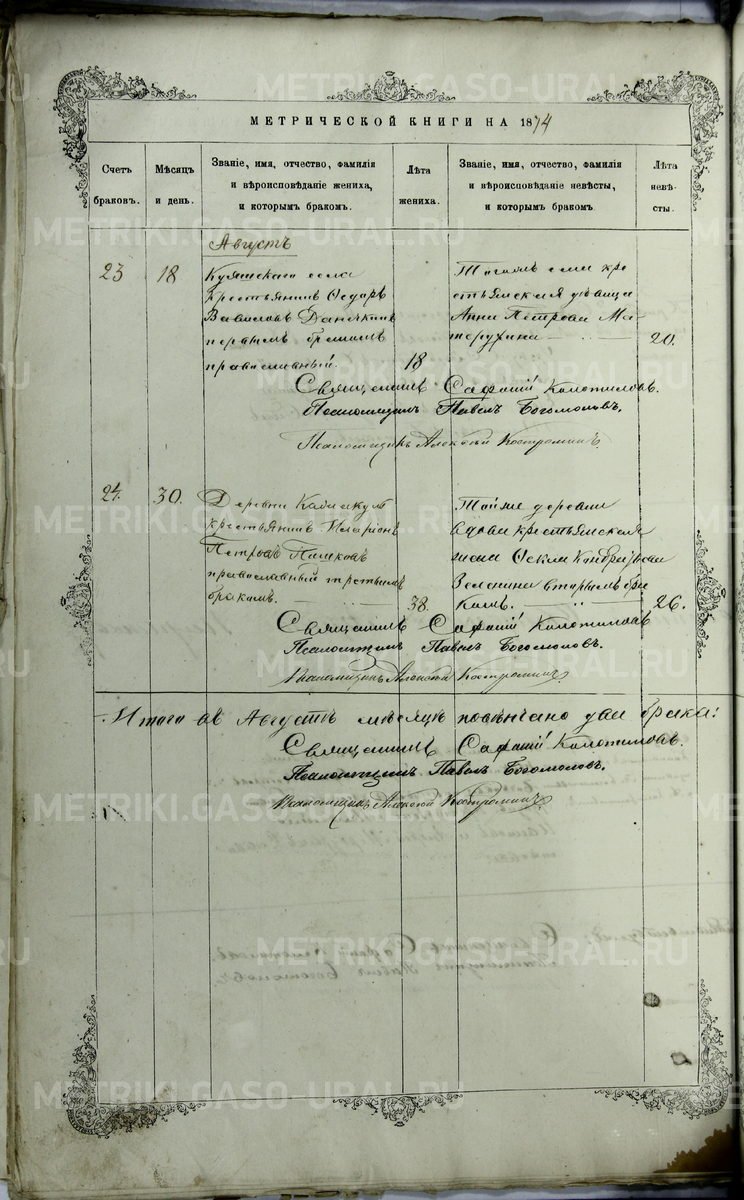 МЕТРИЧЕСКОЙ КНИГИ НА 1874
Счетъ браковъ.
Мѣсяцъ и день.
Званіе, имя, отчество, фамилія
и вѣроисповѣданіе жениха,
и которымъ бракомъ.
Лѣта жениха.
Званіе, имя, отчество, фамилія
и вѣроисповѣданіе невѣсты,
и которымъ бракомъ
Лѣта невѣ-
сты.
Августъ
23
18
села
крестьянинъ Ѳедоръ
Вавиловъ
первымъ бракомъ
православный.
18
Тогоже села кре
стьянская дѣвица
Анна Петрова Ма-
терухина
20.
Священникъ
Псаломщикъ Павелъ Богомоловъ.
Псаломщикъ Алексѣй Костроминъ
24.
30.
Деревни
крестьянинъ Иларіонъ
Петровъ
православный третьимъ
бракомъ.
38.
Тойже деревни
вдова крестьянская
жена
Зеленина вторымъ бра
комъ.
26.
Священникъ
Псаломщикъ Павелъ Богомоловъ.
Псаломщикъ Алексѣй Костроминъ
Итого въ Августѣ мѣсяцѣ повѣнчано два брака:
Священникъ
Псаломщикъ Павелъ Богомоловъ.
Псаломщикъ Алексѣй Костроминъ
METRIKI.GASO-URAL.RU